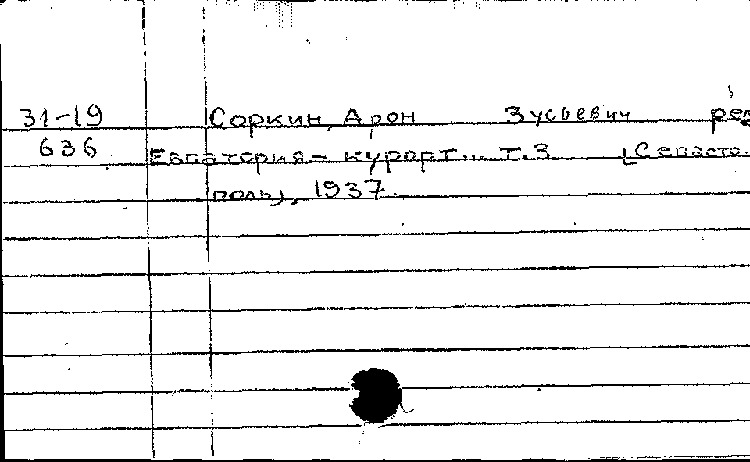 31-19 Соркин, Арон Зусьевич ред
636 Евпатория - курорт... т.3 [Севасто-
поль], 1937.